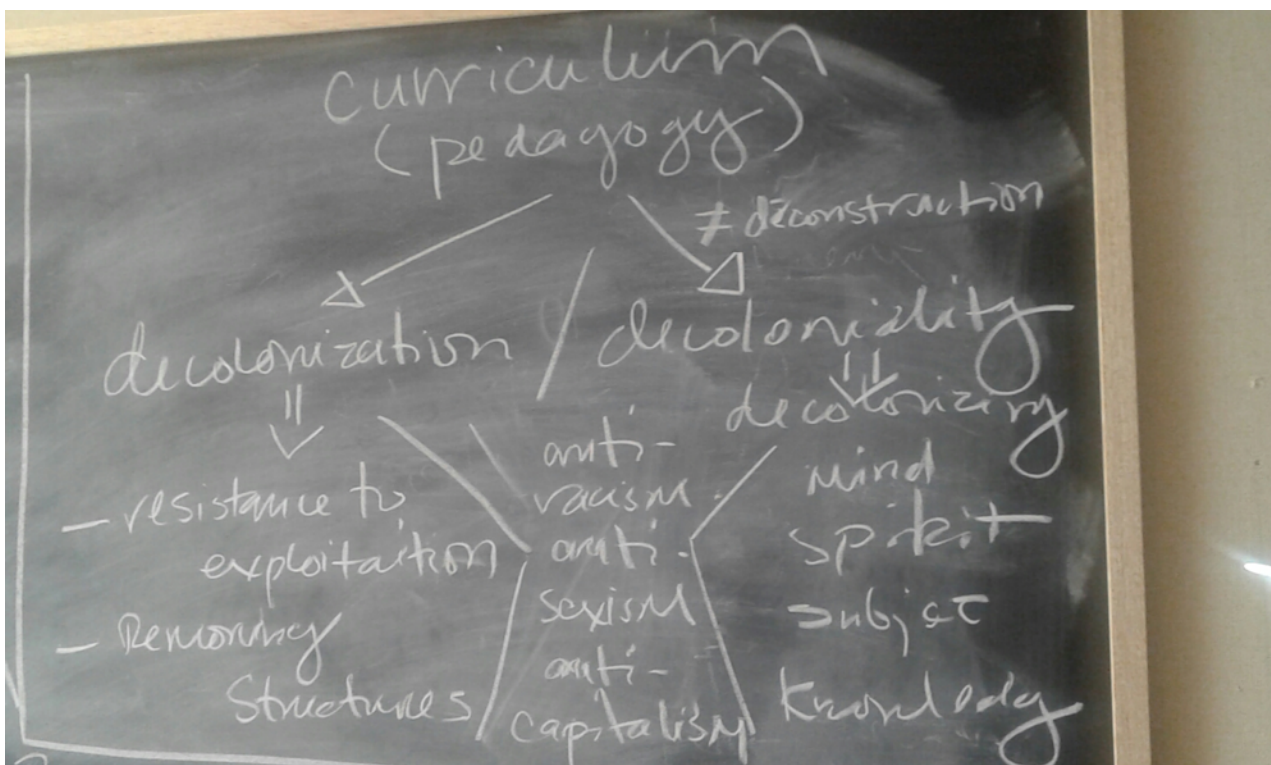 curriculum
(pedagogy)
≠ deconstruction
decolonization / decoloniality
- resistance to
exploitaition
- Removing
Structures
anti-
racism
anti-
sexism
anti-
capitalism
decolonizing
mind
spirit
subject
knowledg